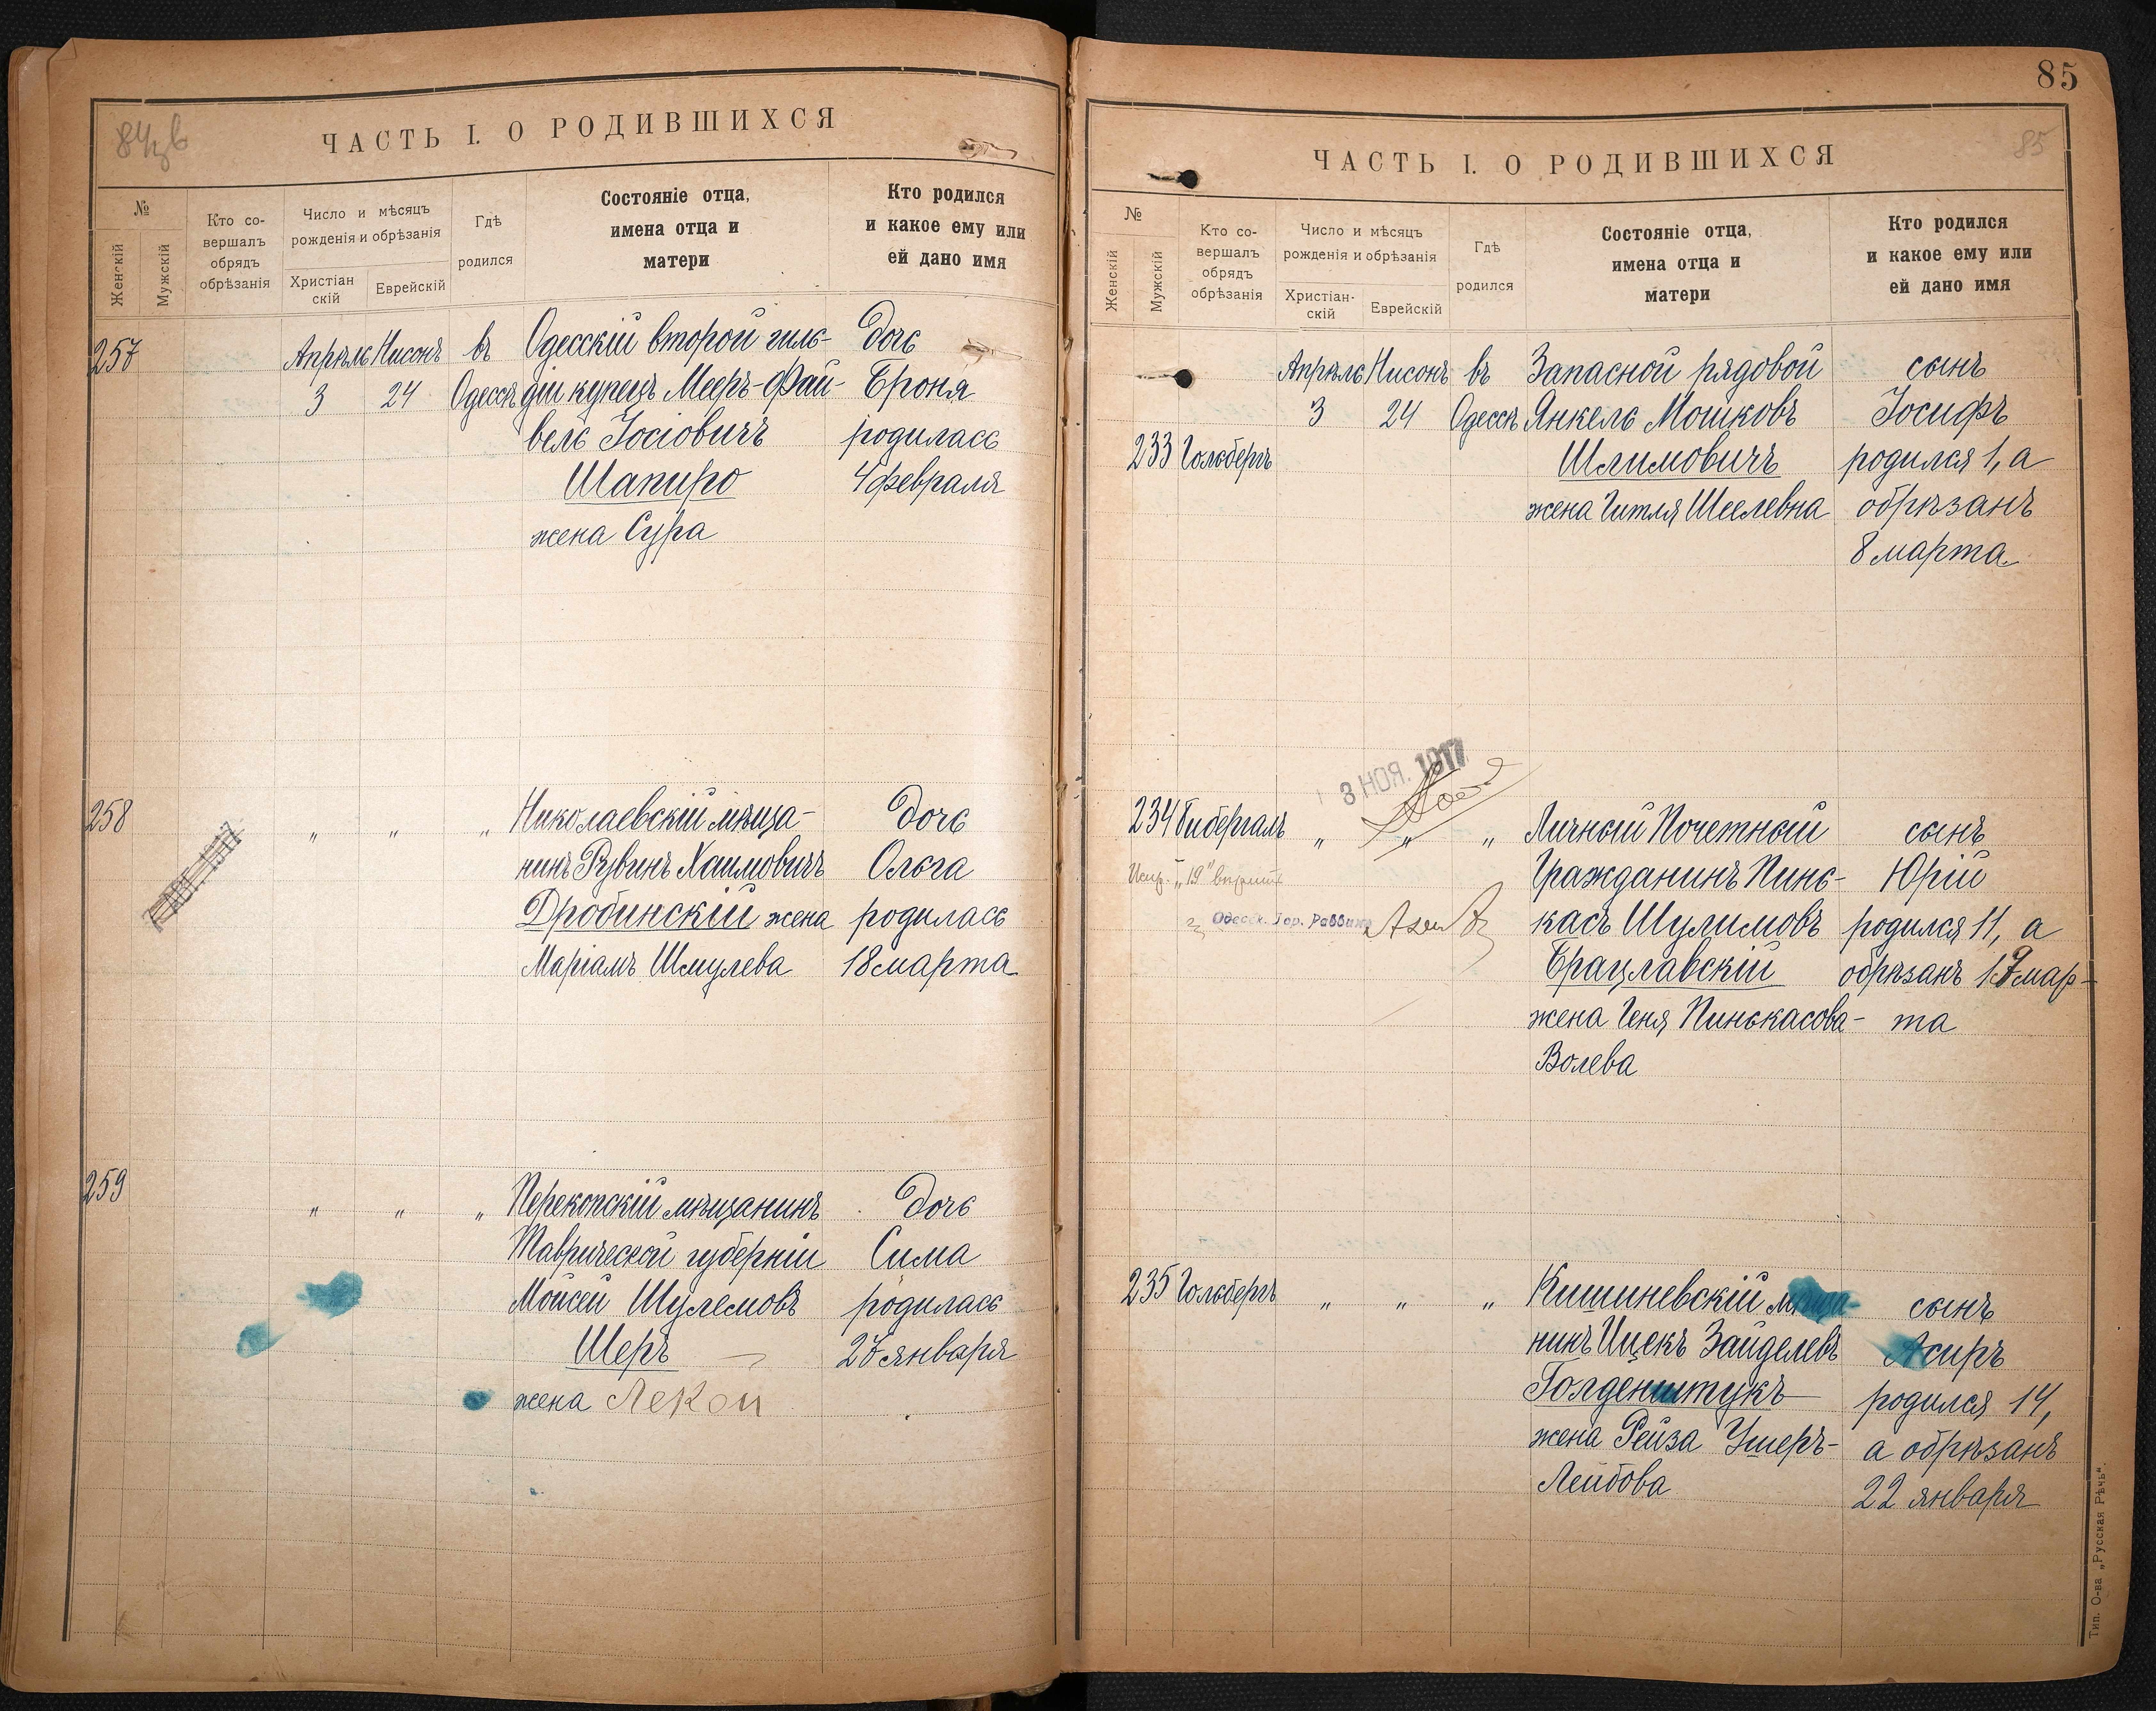 84 зв
ЧАСТЬ I. О РОДИВШИХСЯ
№
Женскій
Мужскій
Кто со-
вершалъ
обрядъ
обрѣзанія
Число и мѣсяцъ
рожденія и обрѣзанія
Христіан
скій
Еврейскій
Гдѣ
родился
Состояніе отца,
имена отца и
матери
Кто родился
и какое ему или
ей дано имя
257
Апрѣль Нисонъ въ Одесскій второй гиль- дочь
3 24 Одессѣ діи купецъ Мееръ-Фай- Броня
вель Іосіовичъ родилась
Шапиро 4 февраля
жена Сура
258 " " " Николаевскій мѣща- дочь
нинъ Рувинъ Хаимовичъ Ольга
Дробинскій жена родилась
Маріамъ Шмулева 18 марта
259
" " " Перекопскій мѣщанинъ дочь
Таврической губерніи Сима
Мойсей Шулемовъ родилась
Шеръ 27 января
жена
85
85
ЧАСТЬ I. О РОДИВШИХСЯ
№
Женскій
Мужскій
Кто со-
вершалъ
обрядъ
обрѣзанія
Число и мѣсяцъ
рожденія и обрѣзанія
Христіан-
скій
Еврейскій
Гдѣ
родился
Состояніе отца,
имена отца и
матери
Кто родился
и какое ему или
ей дано имя
Апрѣль Нисонъ въ Запасной рядовой сынъ
3 24 Одессѣ Янкель Мошковъ Іосифъ
233 Гольбергъ Шлимовичъ родился 1, а
жена Гитля Шеелевна обрѣзанъ
8 марта
3 НОЯ. 1917
234 Гибергалъ " " " Личный Почетный сынъ
Испр. "19"
Гражданинъ Пинь- Юрій
Одесск. Гор. Раввинъ
касъ Шулимовъ родился 11, а
Брацлавскій обрѣзанъ 19 мар-
жена Геня Пинькасова- та
Волева
235 Гольбергъ " " " Кишиневскій мѣща- сынъ
нинъ Ицекъ Зайделевъ Асиръ
Голденштукъ родился 14,
жена Рейза Ушеръ- а обрѣзанъ
Лейбова 22 января
Тип. О-ва „Русская Рѣчь".